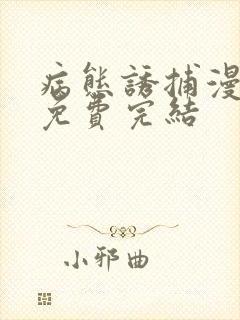 病態誘捕漫
免費完結
小邪曲